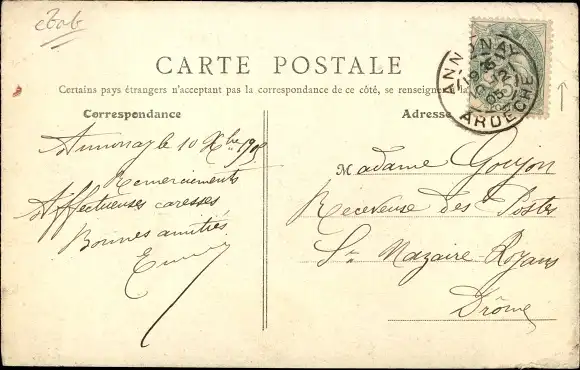 CARTE POSTALE
Certains pays étrangers n'acceptant pas la correspondance de ce côté, se renseigner
Correspondance
Annonay le 10 Xbre 1905
Remerciements
Affectueuses caresses
Bonnes amitiés
Adresse
ANNONAY
ARDECHE
Madame Goujon
Receveuse des Postes
St Nazaire Royans
Drôme